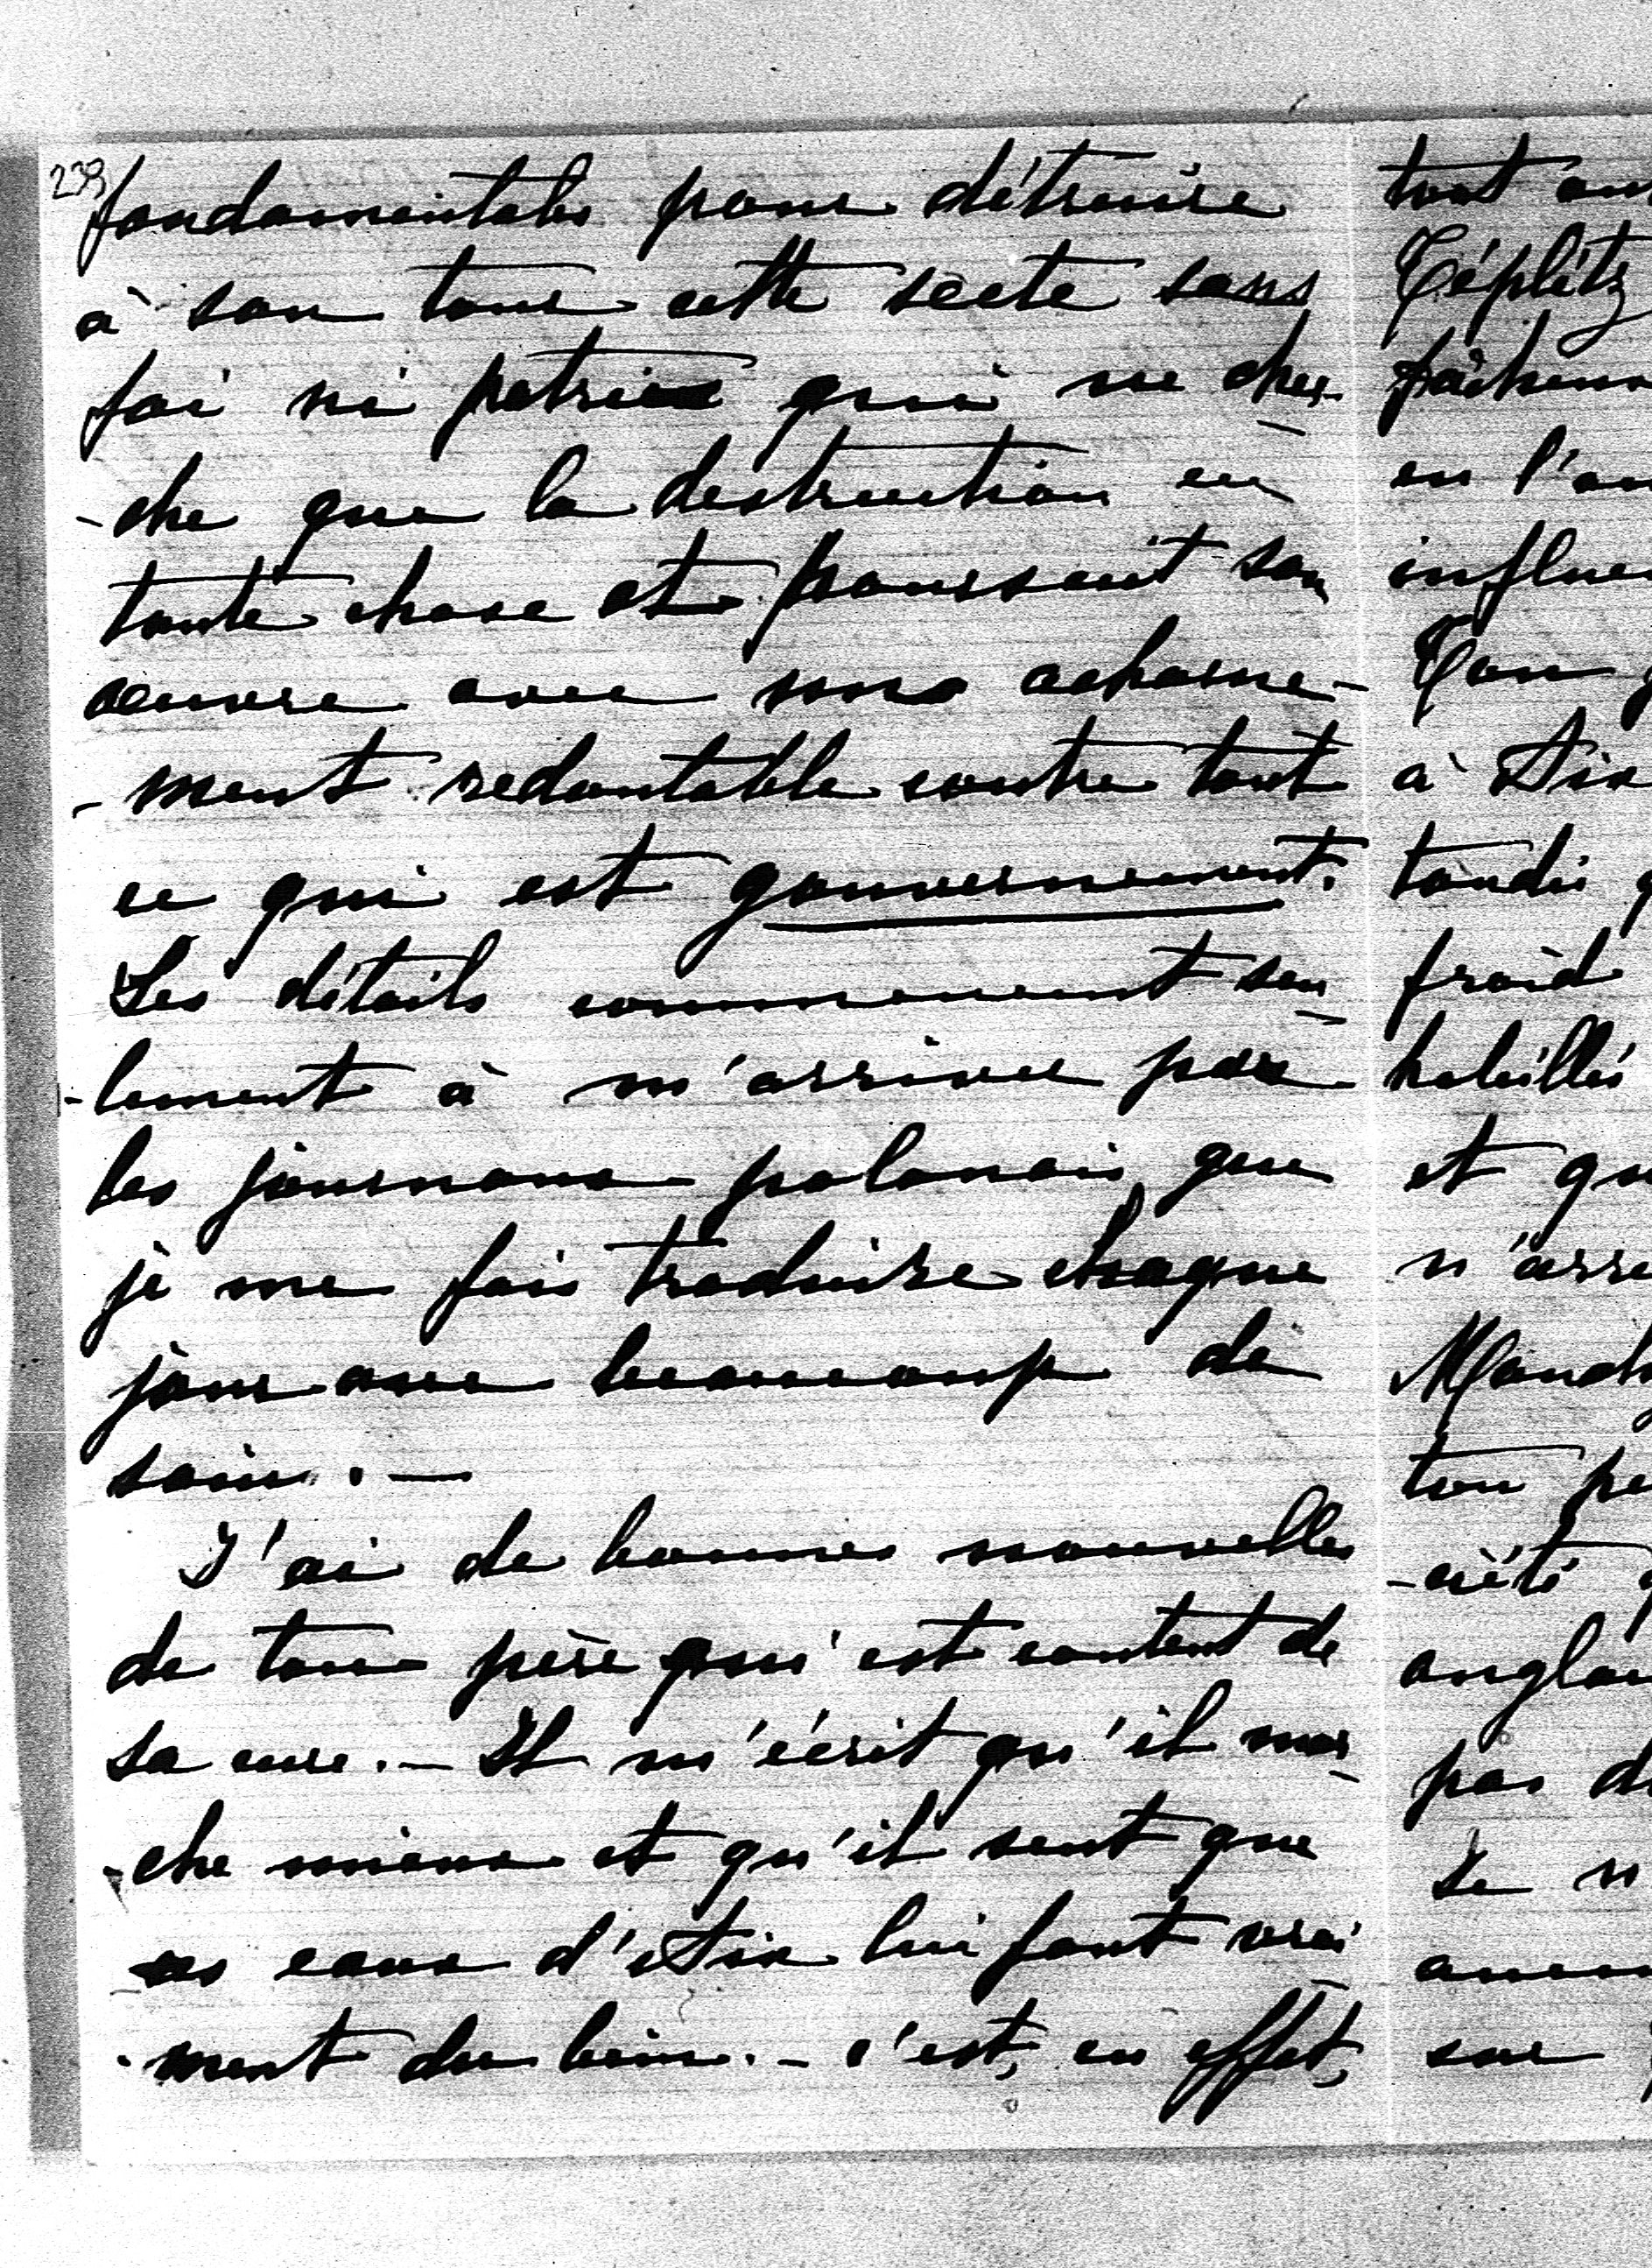 239
fondamentales pour détruire
à son tour cette secte sans
foi ni patrie qui ne cher-
-che que la destruction en
toute chose et poursuit son
oeuvre avec un acharne-
-ment redoutable contre tout
ce qui est gouvernement.
Les détails commencent seu-
-lement à m'arriver par
les journaux polonais que
je me fais traduire chaque
jour avec beaucoup de
soin. —
J'ai de bonnes nouvelles
de ton père qui est content de
sa cure. — Il m'écrit qu'il mar-
-che mieux et qu'il sent que
ces eaux d'Aix lui font vrai-
-ment du bien. — c'est, en effet,
tout
Téplitz
en l'
influe
Ton
à Aix
tandis
froid
habillés
et qu
n'arr
ton pe
-ciété
anglai
pas d
Je n
sur